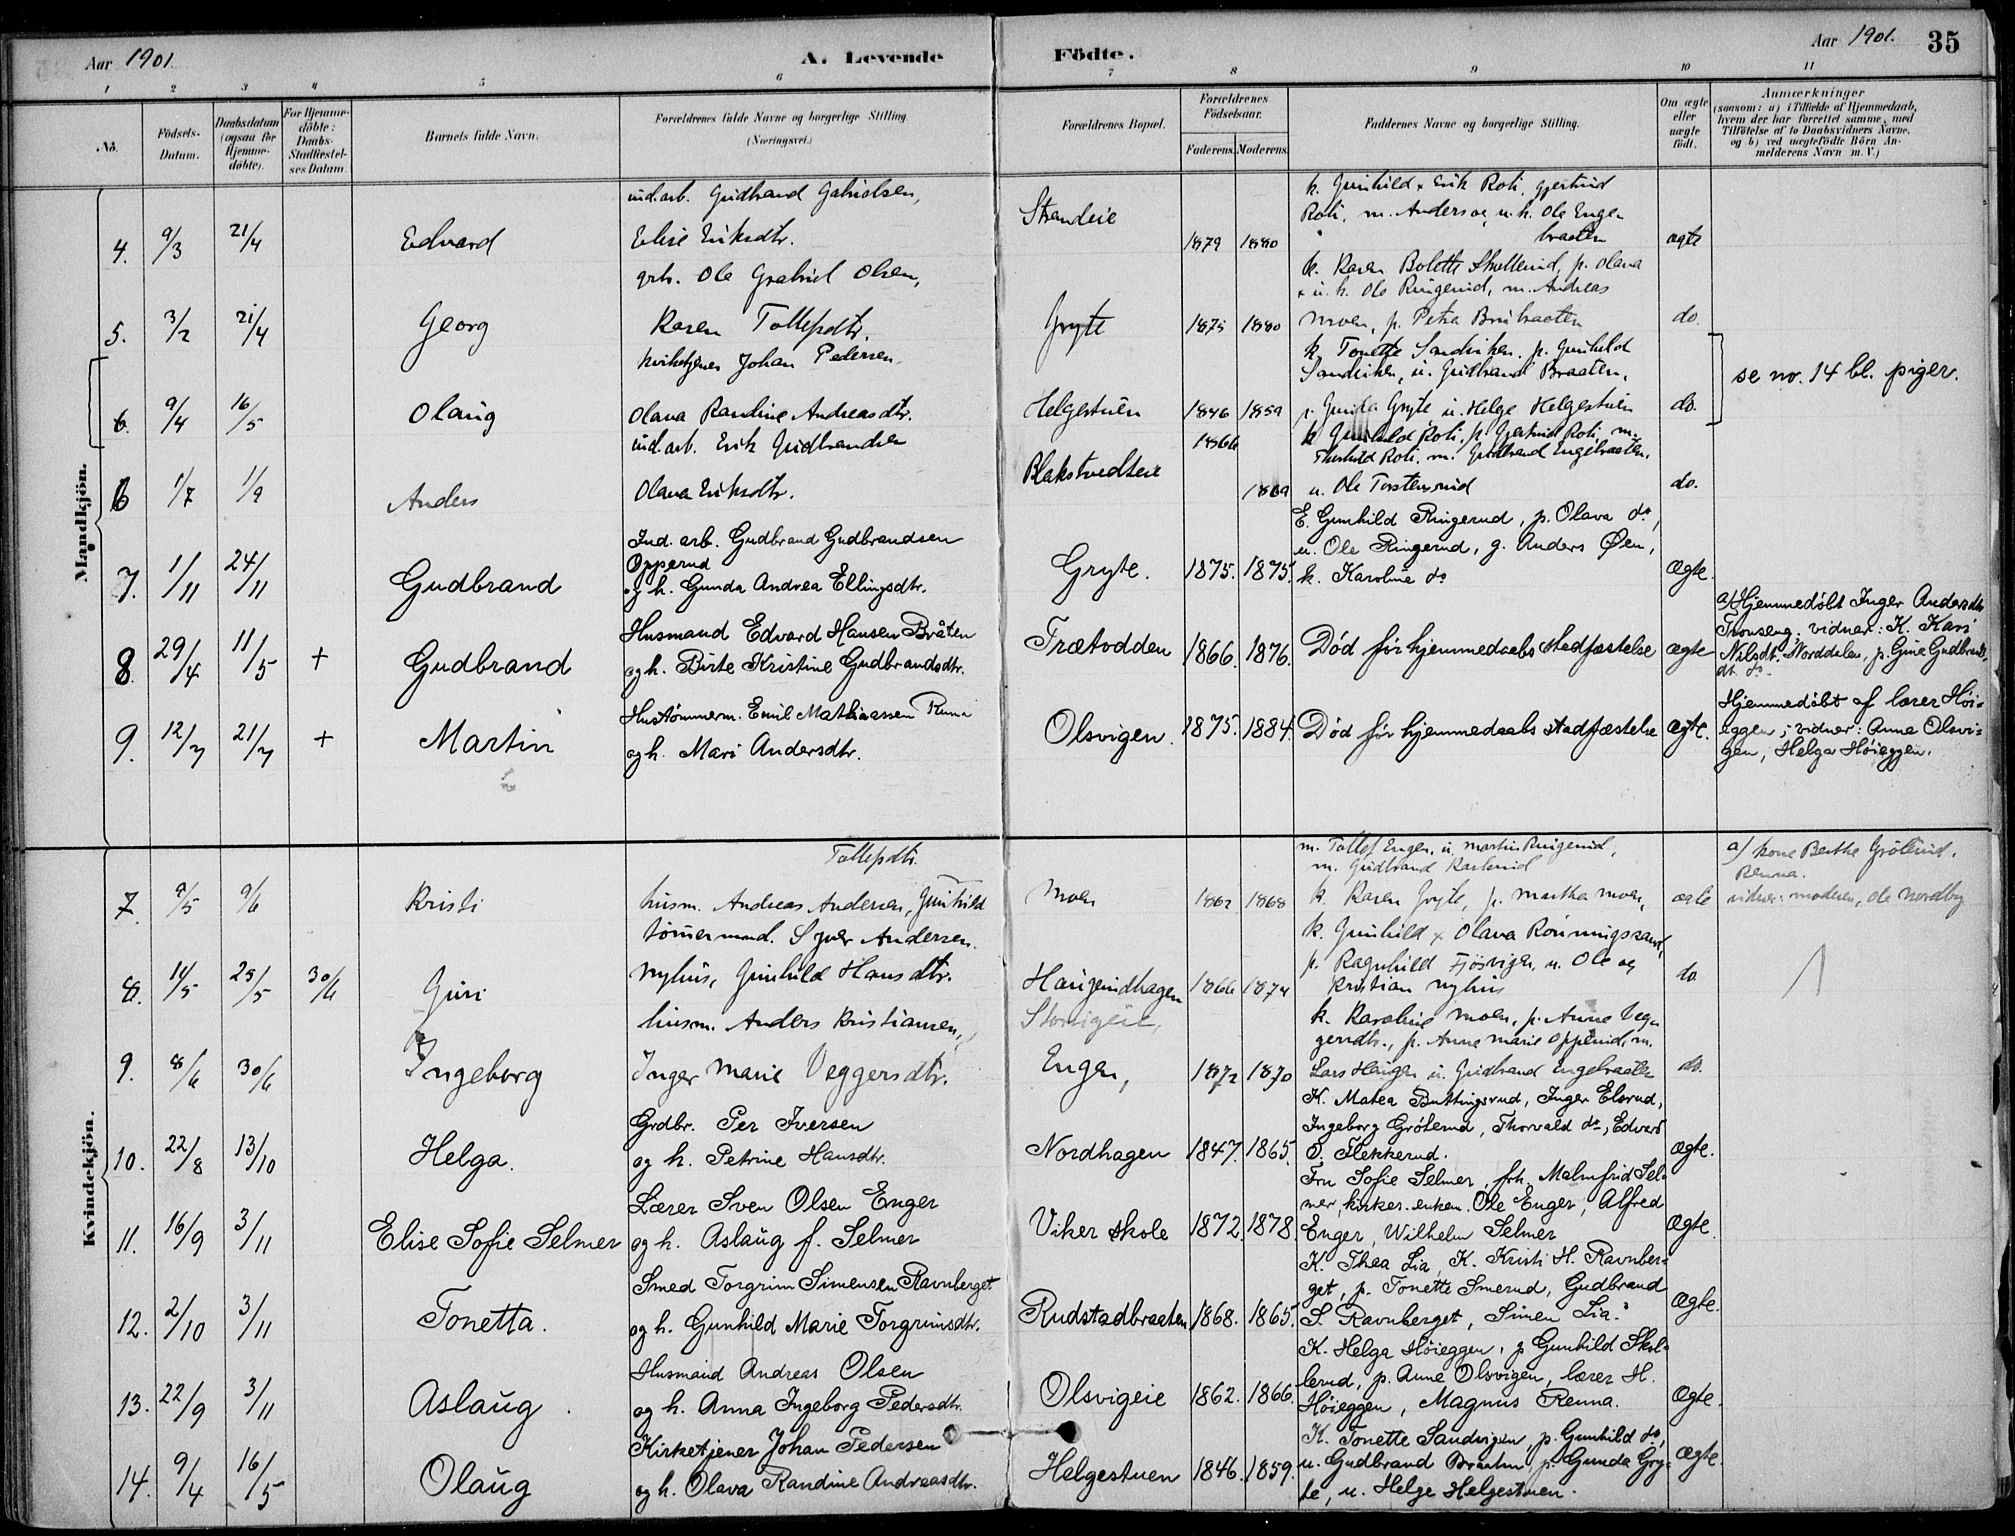 Aar 1901. A. Levende Födte. Aar 1901. 35
1 2 3 4 5 6 7 8 9 10 11
No. Födsels-Datum. Daabsdatum (ogsaa for Hjemme-döbte). For Hjemme-döbte: Daabs-Stadfæstel-ses Datum. Barnets fulde Navn. Forældrenes fulde Navne og borgerlige Stilling. (Næringsvei.) Forældrenes Bopæl. Forældrenes Födselsaar. Faderens. Moderens. Faddernes Navne og borgerlige Stilling. Om ægte eller uægte født. Anmærkninger (saasom: a) i Tilfælde af Hjemmedaab, hvem der har forrettet samme, med Tilföielse af to Daabsvidners Navne. og b) ved uægtefödte Börn An-melderens Navn m. V.)
Mandkjön.
ind.arb. Gudbrand Gabrielsen, k. Gunhild + Erik Roti, Gjertrud
Strandeie Roti, m. Anders og u. k. Ole Engen
4. 9/3 21/4 Edvard Elise Eriksdtr. 1879 1880 braaten ægte
grb. Ole Gabriel Olsen, k. Karen Bolette Skollerud, p. Olava
+ u. k. Ole Ringerud, m. Andreas
5. 3/2 21/4 Georg Karen Tollefsdtr. Gryte 1875 1880 Moen, p. Petra Bråbraaten do.
kirketjener Johan Pedersen k. Tonette Sandviken. p. Gunhild
Sandviken, u. Gudbrand Braaten, se no. 14 bl. piger.
6. 9/4 16/5 Olaug Olava Randine Andreasdtr. Helgestuen 1846 1859 p. Gunda Gryte u. Helge Helgestuen do.
ind.arb. Erik Gudbrandsen 1866 k Gunhild Roti. p. Gjertrud Roti, m.
Blakstvedteie Thorhild Roti. m. Gudbrand Engebraaten,
6 1/7 1/9 Anders Olava Eriksdtr. 1869 u. Ole Torstensrud do.
E. Gunhild Ringerud, p. Olava do,
Ind. arb. Gudbrand Gudbrandsen u. Ole Ringerud, g. Anders Øen,
Opperud
7. 1/11 24/11 Gudbrand og h. Gunda Andrea Ellingsdtr. Gryte. 1875. 1875. k. Karoline do Ægte.
a) Hjemmedøbt Inger Andersdtr
Husmand Edvard Hansen Bråten Tronseng; vidner: K. Kari
8. 29/4 11/5 + Gudbrand og h. Birte Kristine Gudbrandsdtr. Trætodden 1866. 1876. Død før hjemmedaabs stadfæstelse ægte Nilsdt. Norddalen, p. Gina Gudbrands
dt. do-
Hustømmerm. Emil Mathiassen Renna Hjemmedøbt af lærer Høi-
9. 12/7 21/7 + Martin og h. Mari Andersdtr. Olsvigen. 1875. 1884. Død før hjemmedaabs stadfæstelse Ægte. eggen; vidner: Anne Olsvi-
gen, Helga Høieggen.
Kvindekjön.
Tollefsdtr. m. Tollef Engen, u. Martin Ringerud, a) kone Berthe Grøterud.
m. Gudbrand Karlerud Renna.
7. 9/5 9/6 Kristi husm. Andreas Andersen, Gunhild Moen 1862 1868 k. Karen Gryte, p. Martha Moen, ægte vidner: moderen, Ole Nordby
tømmermand. Syver Andersen. k. Gunhild + Olava Rønningssand,
p. Ragnhild Fjøsvigen, u. Ole og
8. 14/5 25/5 30/6 Guri Nyhus, Gunhild Hansdtr. Haugerudhagen 1866 1874 Kristian Nyhus do
husm. Anders Kristiansen, Storvigeie, k. Karoline Moen, p. Anne Veg-
gersdtr., p. Anne Marie Opperud, m.
9. 8/6 30/6 Ingeborg Inger Marie Veggersdtr. Engen, 1872 1870 Lars Haugen u. Gudbrand Engebraaten do.
K. Matea Buttingsrud, Inger Elsrud,
Grdbr. Per Iversen Ingeborg Grøterud, Thorvald do, Edvard
10. 22/8 13/10 Helga. og h. Petrine Hansdtr. Nordhagen 1847. 1865. O. Flekkerud. Ægte.
Fru Sofie Selmer, frk. Malmfrid Sel-
Lærer Sven Olsen Enger mer, kirkes. enken. Ole Enger, Alfred
11. 16/9 3/11 Elise Sofie Selmer og h. Aslaug f. Selmer Viker skole 1872. 1878. Enger, Wilhelm Selmer Ægte.
K. Thea Lia, K. Kristi H. Ravnber-
Smed Torgrim Simensen Ravnberget get, p. Tonette Smerud, Gudbrand
12. 2/10 3/11 Tonetta. og h. Gunhild Marie Torgrimsdtr. Rudstadbraaten 1868. 1865. S. Ravnberget, Simen Lia. Ægte.
K. Helga Høieggen, p Gunhild Skol-
Husmand Andreas Olsen lerud, p. Anne Olsvigen, lærer H.
13. 22/9 3/11 Aslaug. og h. Anna Ingeborg Pedersdtr. Olsvigeie 1862. 1866. Høieggen, Magnus Renna. Ægte.
Kirketjener Johan Pedersen K. Tonette Sandvigen, p. Gunhild do,
14. 9/4 16/5 Olaug og h. Olava Randine Andreasdtr. Helgestuen 1846. 1859. u. Gudbrand Braaten p. Gunda Gry- Ægte.
te, u. Helge Helgestuen.